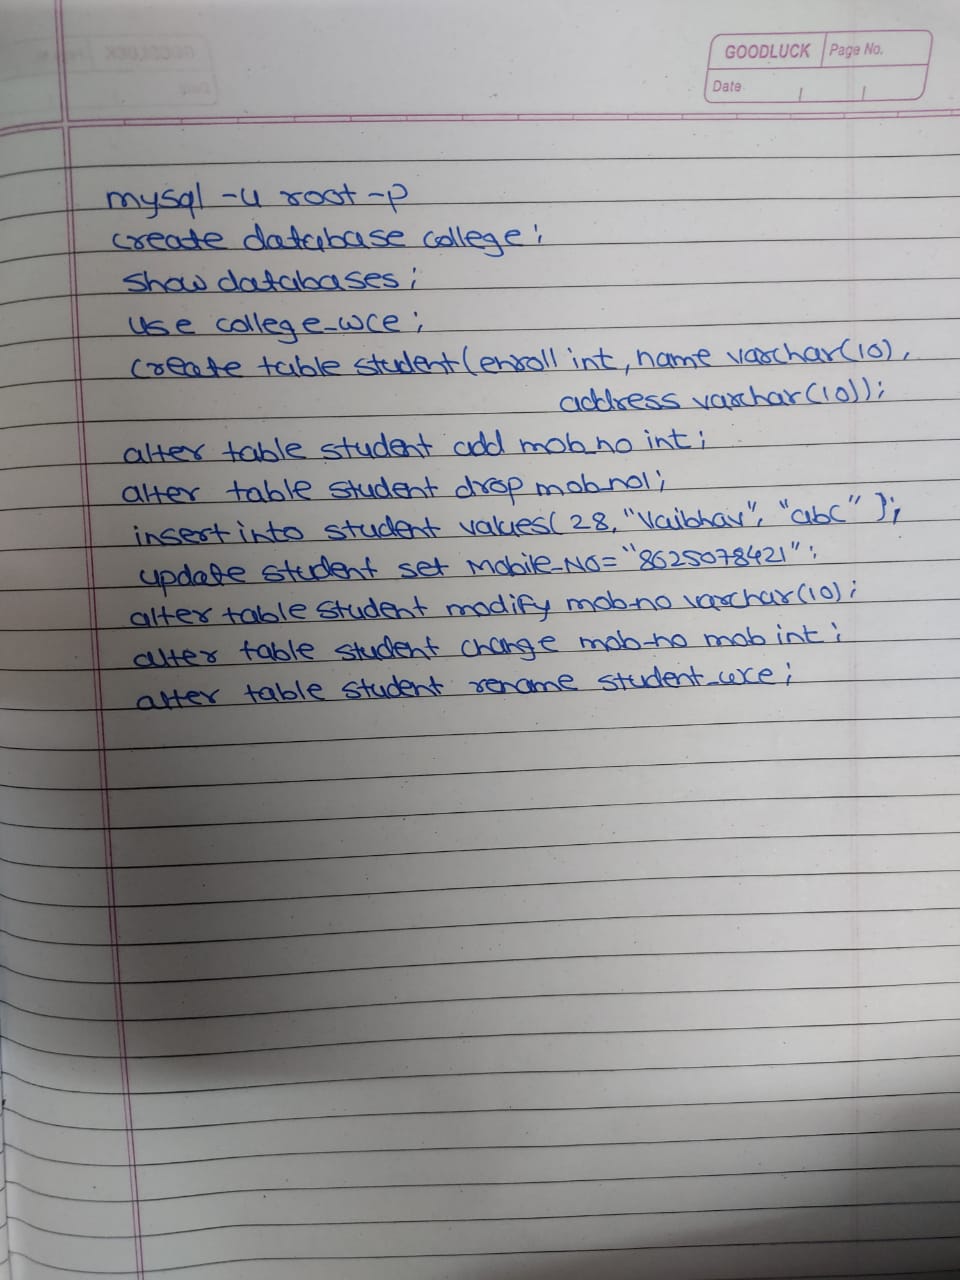 GOODLUCK Page No.
Date
mysql -u root -p
create database college;
show databases;
use college_wce;
create table student(enroll int, name varchar(10),
address varchar(10));
alter table student add mob_no int;
alter table student drop mob_no1;
insert into student values( 28, "Vaibhav", "abc" );
update student set Mobile_No= "8625078421";
alter table student modify mob_no varchar(10);
alter table student change mob_no mob int;
alter table student rename student_wce;